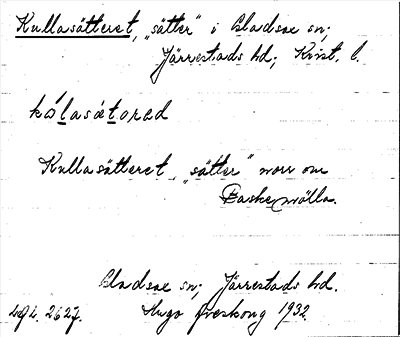 Kullasätteret, "sätter" i Gladsax sn;
Järrestads hd; Krist. l.
Kullasätteret, "sätter" norr om
Baskemölla.
Gladsax sn; Järrestads hd.
Hugo Areskoug 1932.